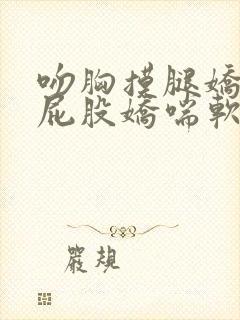 吻胸摸腿嬌
屁股嬌喘軟
嚴規